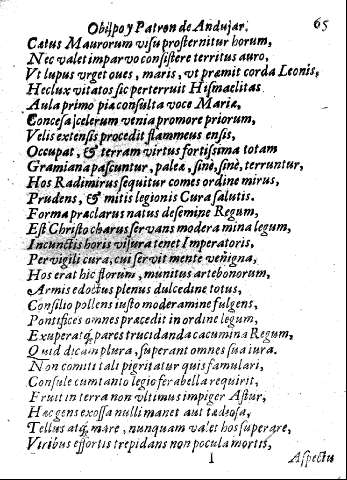 Obiſpo y Patron de Andujar. 65
Catus Maurorum viſu proſternitur horum,
Nec valet imparvo conſiſtere territus auro,
Vt lupus urget oues, maris, ut præmit corda Leonis,
Heclux vitatos ſic perterruit Hiſmaelitas
Aula primo pia conſulta voce Mariæ,
Conceſa ſcelerum venia promore priorum,
Velis extenſis procedit flammeus enſis,
Occupat, & terram virtus fortiſima totam
Gramiana paſcuntur, palea, ſinè, ſinè, terruntur,
Hos Radimirus ſequitur comes ordine mirus,
Prudens, & mitis legionis Cura ſalutis.
Forma præclarus natus deſemine Regum,
Eſt Chriſto charus ſervans modera mina legum,
Incunctis horis viſura tenet Imperatoris,
Per vigili cura, cui ſervit mente venigna,
Hos erat hic florum, munitus artebonorum,
Armis edoctus plenus dulcedine totus,
Conſilio pollens iuſto moderamine fulgens,
Pontifices omnes præcedit in ordine legum,
Exuperatq́; pares trucidanda cacumina Regum,
Quid dicam plura, ſuperant omnes ſua iura.
Non comiti tali pigritatur quis famulari,
Conſule cum tanto legio fera bella requirit,
Fruit in terra non vltimus impiger Aſtur,
Hæc gens exoſſa nulli manet aut tædoſa,
Tellus atq́; mare, nunquam vales hos ſuperare,
Viribus effortis trepidans non pocula mortis,
I Aſpectu